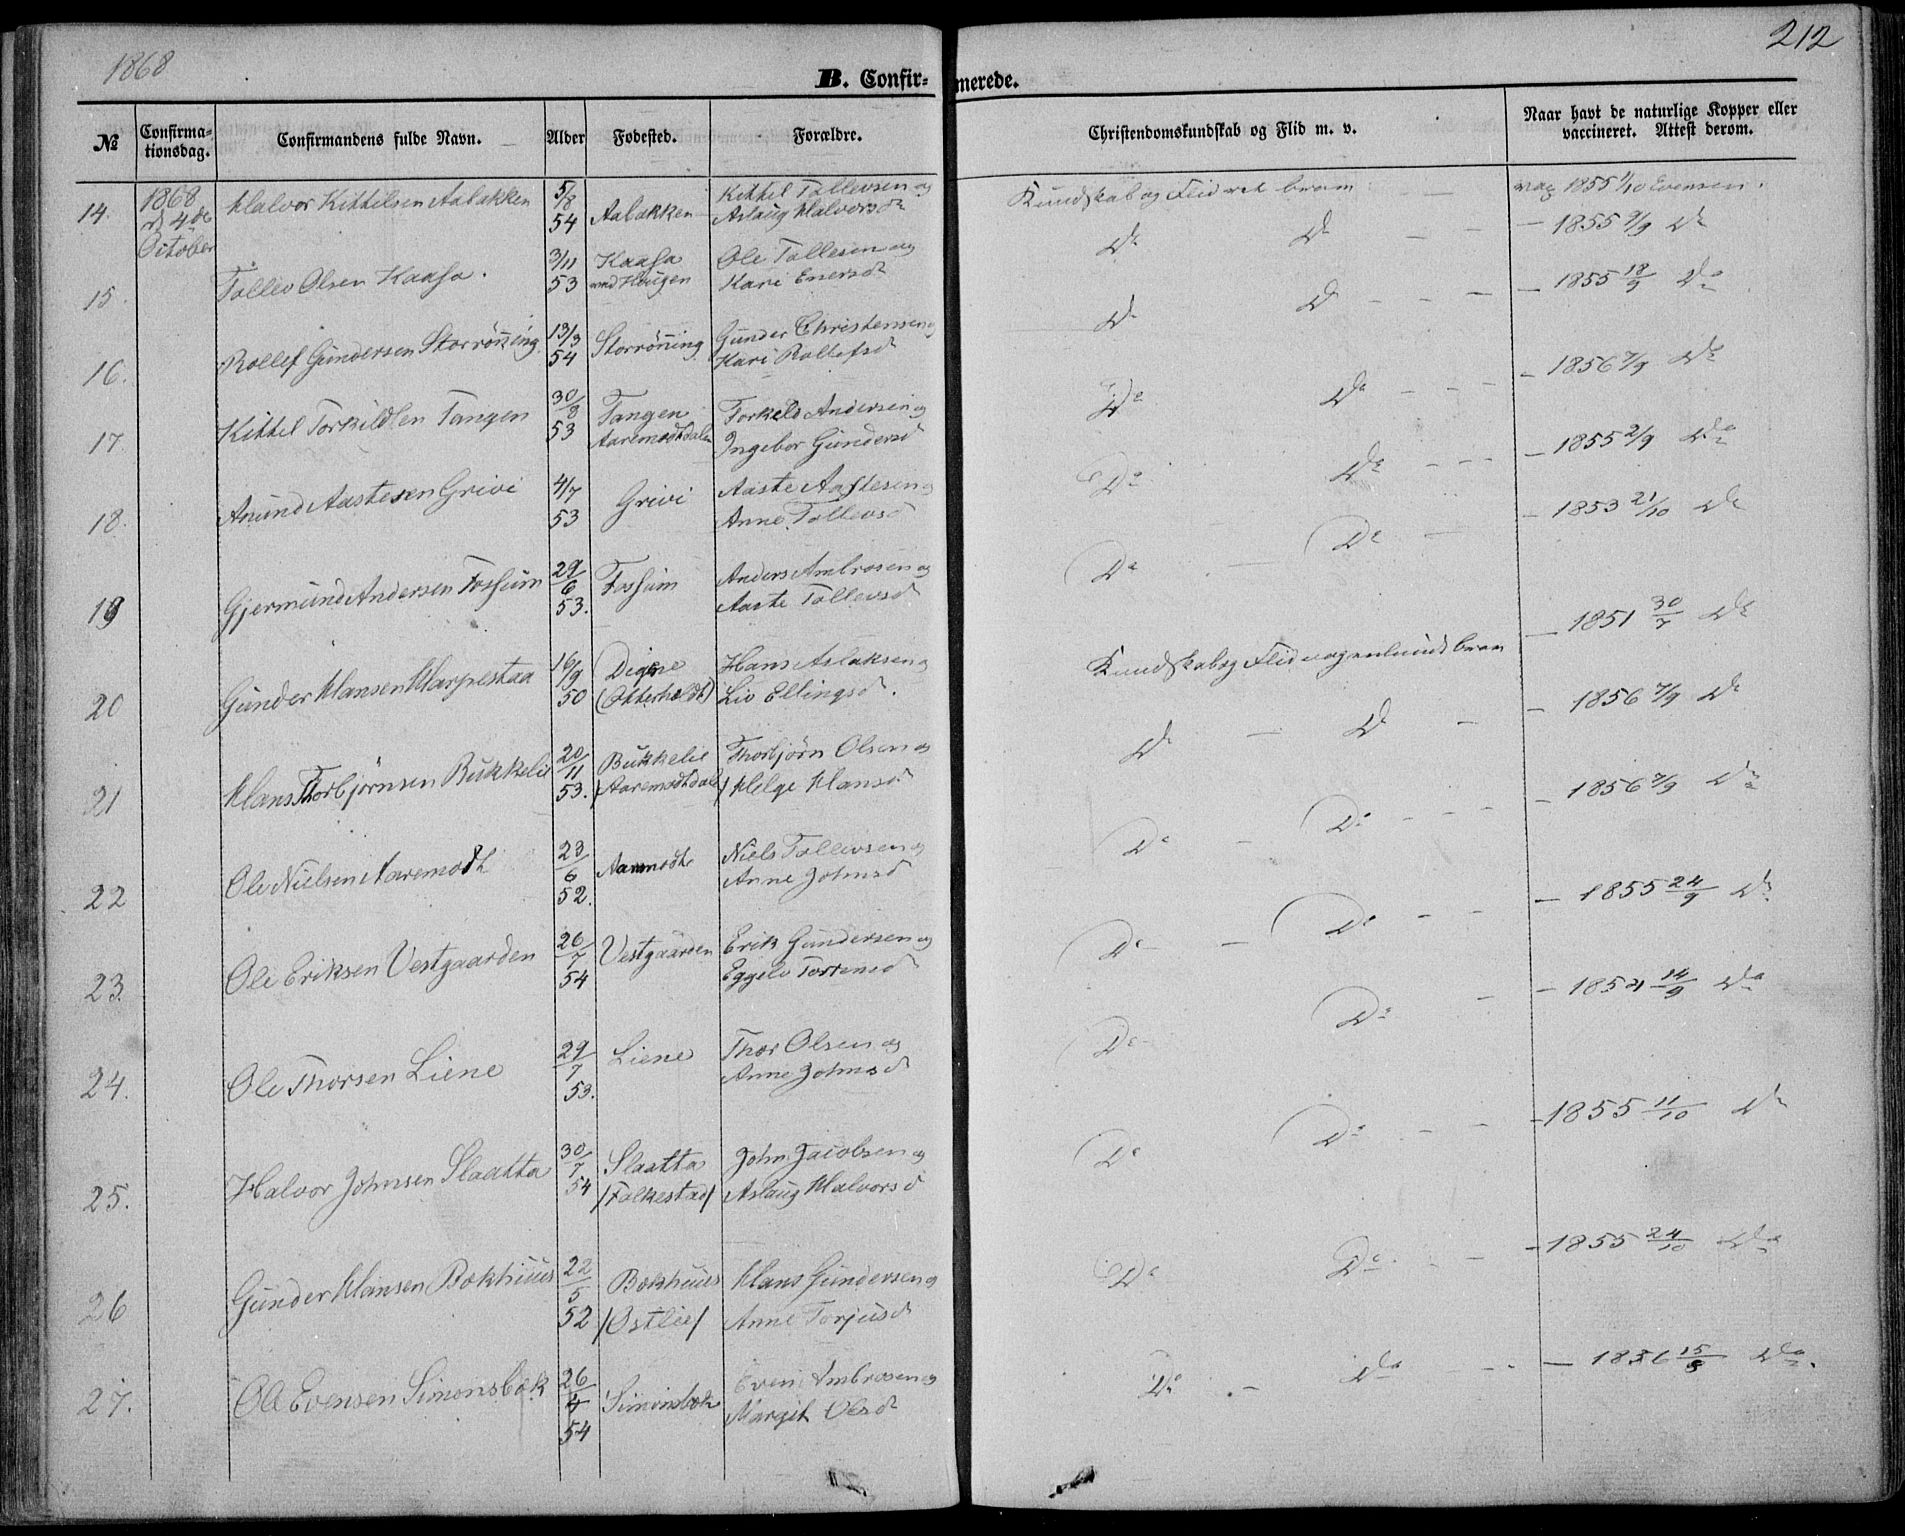 1868
212
B. Confir-
merede.
№
Confirma-
tionsdag.
Confirmandens fulde Navn.
Alder
Fødested.
Forældre.
Christendomskundskab og Flid m. v.
Naar havt de naturlige Kopper eller
vaccineret. Attest derom.
14. 1868 Halvor Kittilsen Aabakken 5/8 54 Aabakken Kittel Tollevsen og
Aslaug Halvorsd
d 4de
October
Kundskab og Flid ret
vac 1855 1/10 Evensen.
15. Tollev Olsen Kaasa. 3/11 53 Kaasa Ole Tollesen og
Kari Enersd
Do Do — — — 1855 9/9 Do
16. Rollef Gundersen Storrønning 13/3 54 Storrønning Gunder Christensen og
Kari Rollefsd
Do Do - - — — 1855 18/9 Do
17. Kittel Torkildsen Tangen 30/8 53 Tangen Torkeld Andersen og
Aaremodtdalen Ingebor Gundersd
Do Do - - - — 1856 7/9 Do
18. Anund Aastesen Grivi 4/7 53 Grivi Aaste Aastesen og
Anne Tollevsd
Do Do - - - — 1855 2/9 Do
19 Gjermund Andersen Fossum 29/6 53. Fossum Anders Ambrosen og
Aaste Tollevsd
Do — Do - — 1853 21/10 Do
20 Gunder Hansen Harpestaa 16/9 50 Hans Aslaksen og
(Otterholdt) Liv Ellingsd.
Kundskab og Flid
— 1851 30/7 Do
21 Hans Thorbjørnsen Bukkelie 20/11 53. Bukkelie Thorbjørn Olsen og
/Aaremodtdale/ Helge Hansd
Do — Do — — 1856 7/9 Do
22 Ole Nielsen Aaremodt 23/6 52. Aaremodt Niels Tollevsen og
Anne Johnsd
Do - Do - - - — 1856 7/9 Do
23. Ole Eriksen Vestgaarden 26/7 54 Vestgaarden Erik Gundersen og
Do — Do - - — 1855 24/9 Do
24. Ole Thorsen Liene 29/7 53. Liene Thor Olsen og
Anne Johnsd
Do Do - — 14/9 Do
25. Halvor Johnsen Slaatta 30/7 54 Slaatta John Jacobsen og
/Folkestad/ Aslaug Halvorsd
Do Do - - - 1855 11/10 Do
26 Gunder Hansen Bokhuus 22/5 52 Bokhuus Hans Gundersen og
/Østlie/ Anne Torjusd
Do Do - - 1855 24/10 Do
27. Ole Evensen Simonsbek 26/4 54 Simonsbek Even Ambrosen og
Margit Olsd
Do - Do - - — 1856 Do.